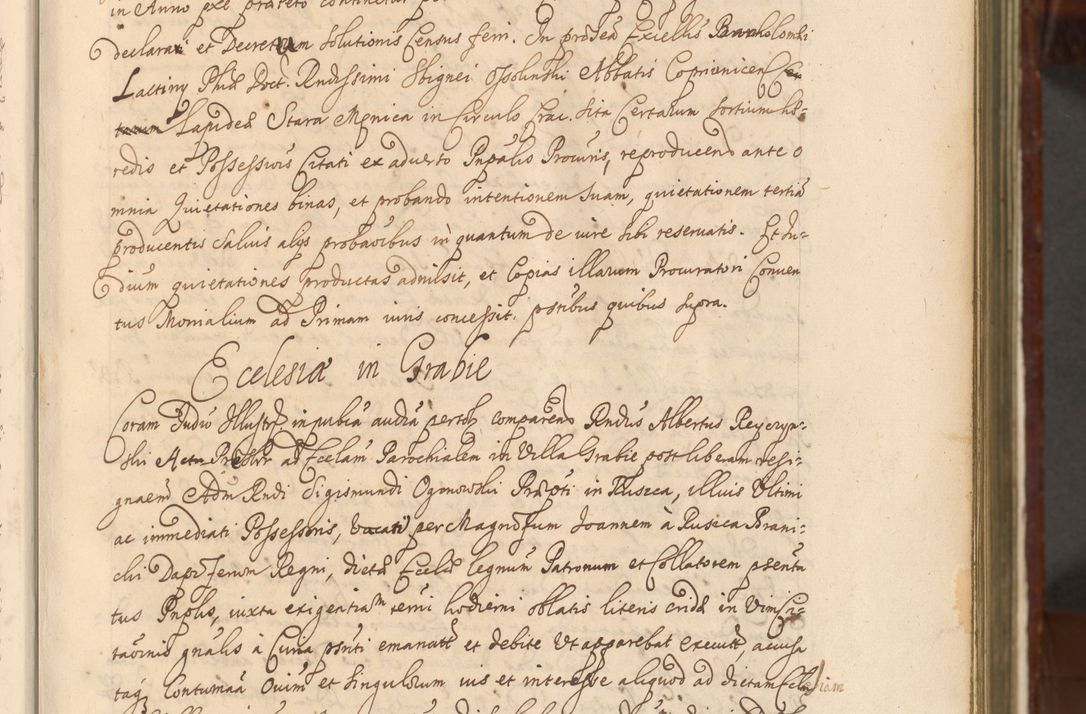 in Anno
declarari et Decretum solutionis Census ferri. In prosea Excellis Bartholomei
Lactiny Phiae Doct. Rndissimi Sbignei Ossolinski Abbatis Coprivnicen Cer
Lapideae Stara Męnica in Circulo Crac. sita Certarum sortium hæ=
redis et Possessoris Citati ex adverso Pnpalis Procuris, reproducend ante o
mnia Quietationes binas, et probando intentionem suam, quietationem tertiã
producentis salvis alys probaõibus in quantum de iure sibi reservatis. Et Ju=
dium quietationes productas admisit, et Copias illarum Procuratori Conven
tus Monialium ad Primam iuris concessit. pntibus quibus supra.
Ecclesiæ in Grabie
Coram Judio Illustr in pubca audia persolr comparens Rndus Albertus Reyczyn=
ski Presbr ad Ecclam Parochialem in Villa Grabie post liberam resi=
gnaem Adm Rndi Sigismundi Ogonowski Præpti in Ruszca, illius Ultimi
ac immediati Possessoris, vacati per Magnificum Joannem à Rusica Brani=
cki Dapiferum Regni, dictæ Eccliæ legnum Patronum et Collatorem psenta
tus Pnplis, iuxta exigentiam termi hodierni oblatis literis cridæ in Vim Ci=
taõinis gnalis à Curia pnti emanatæ et debite Ut apparebat execut, accusa
taq Contumaa Oium et singulorum ius et interesse aliquod ad dictam Eccle siam